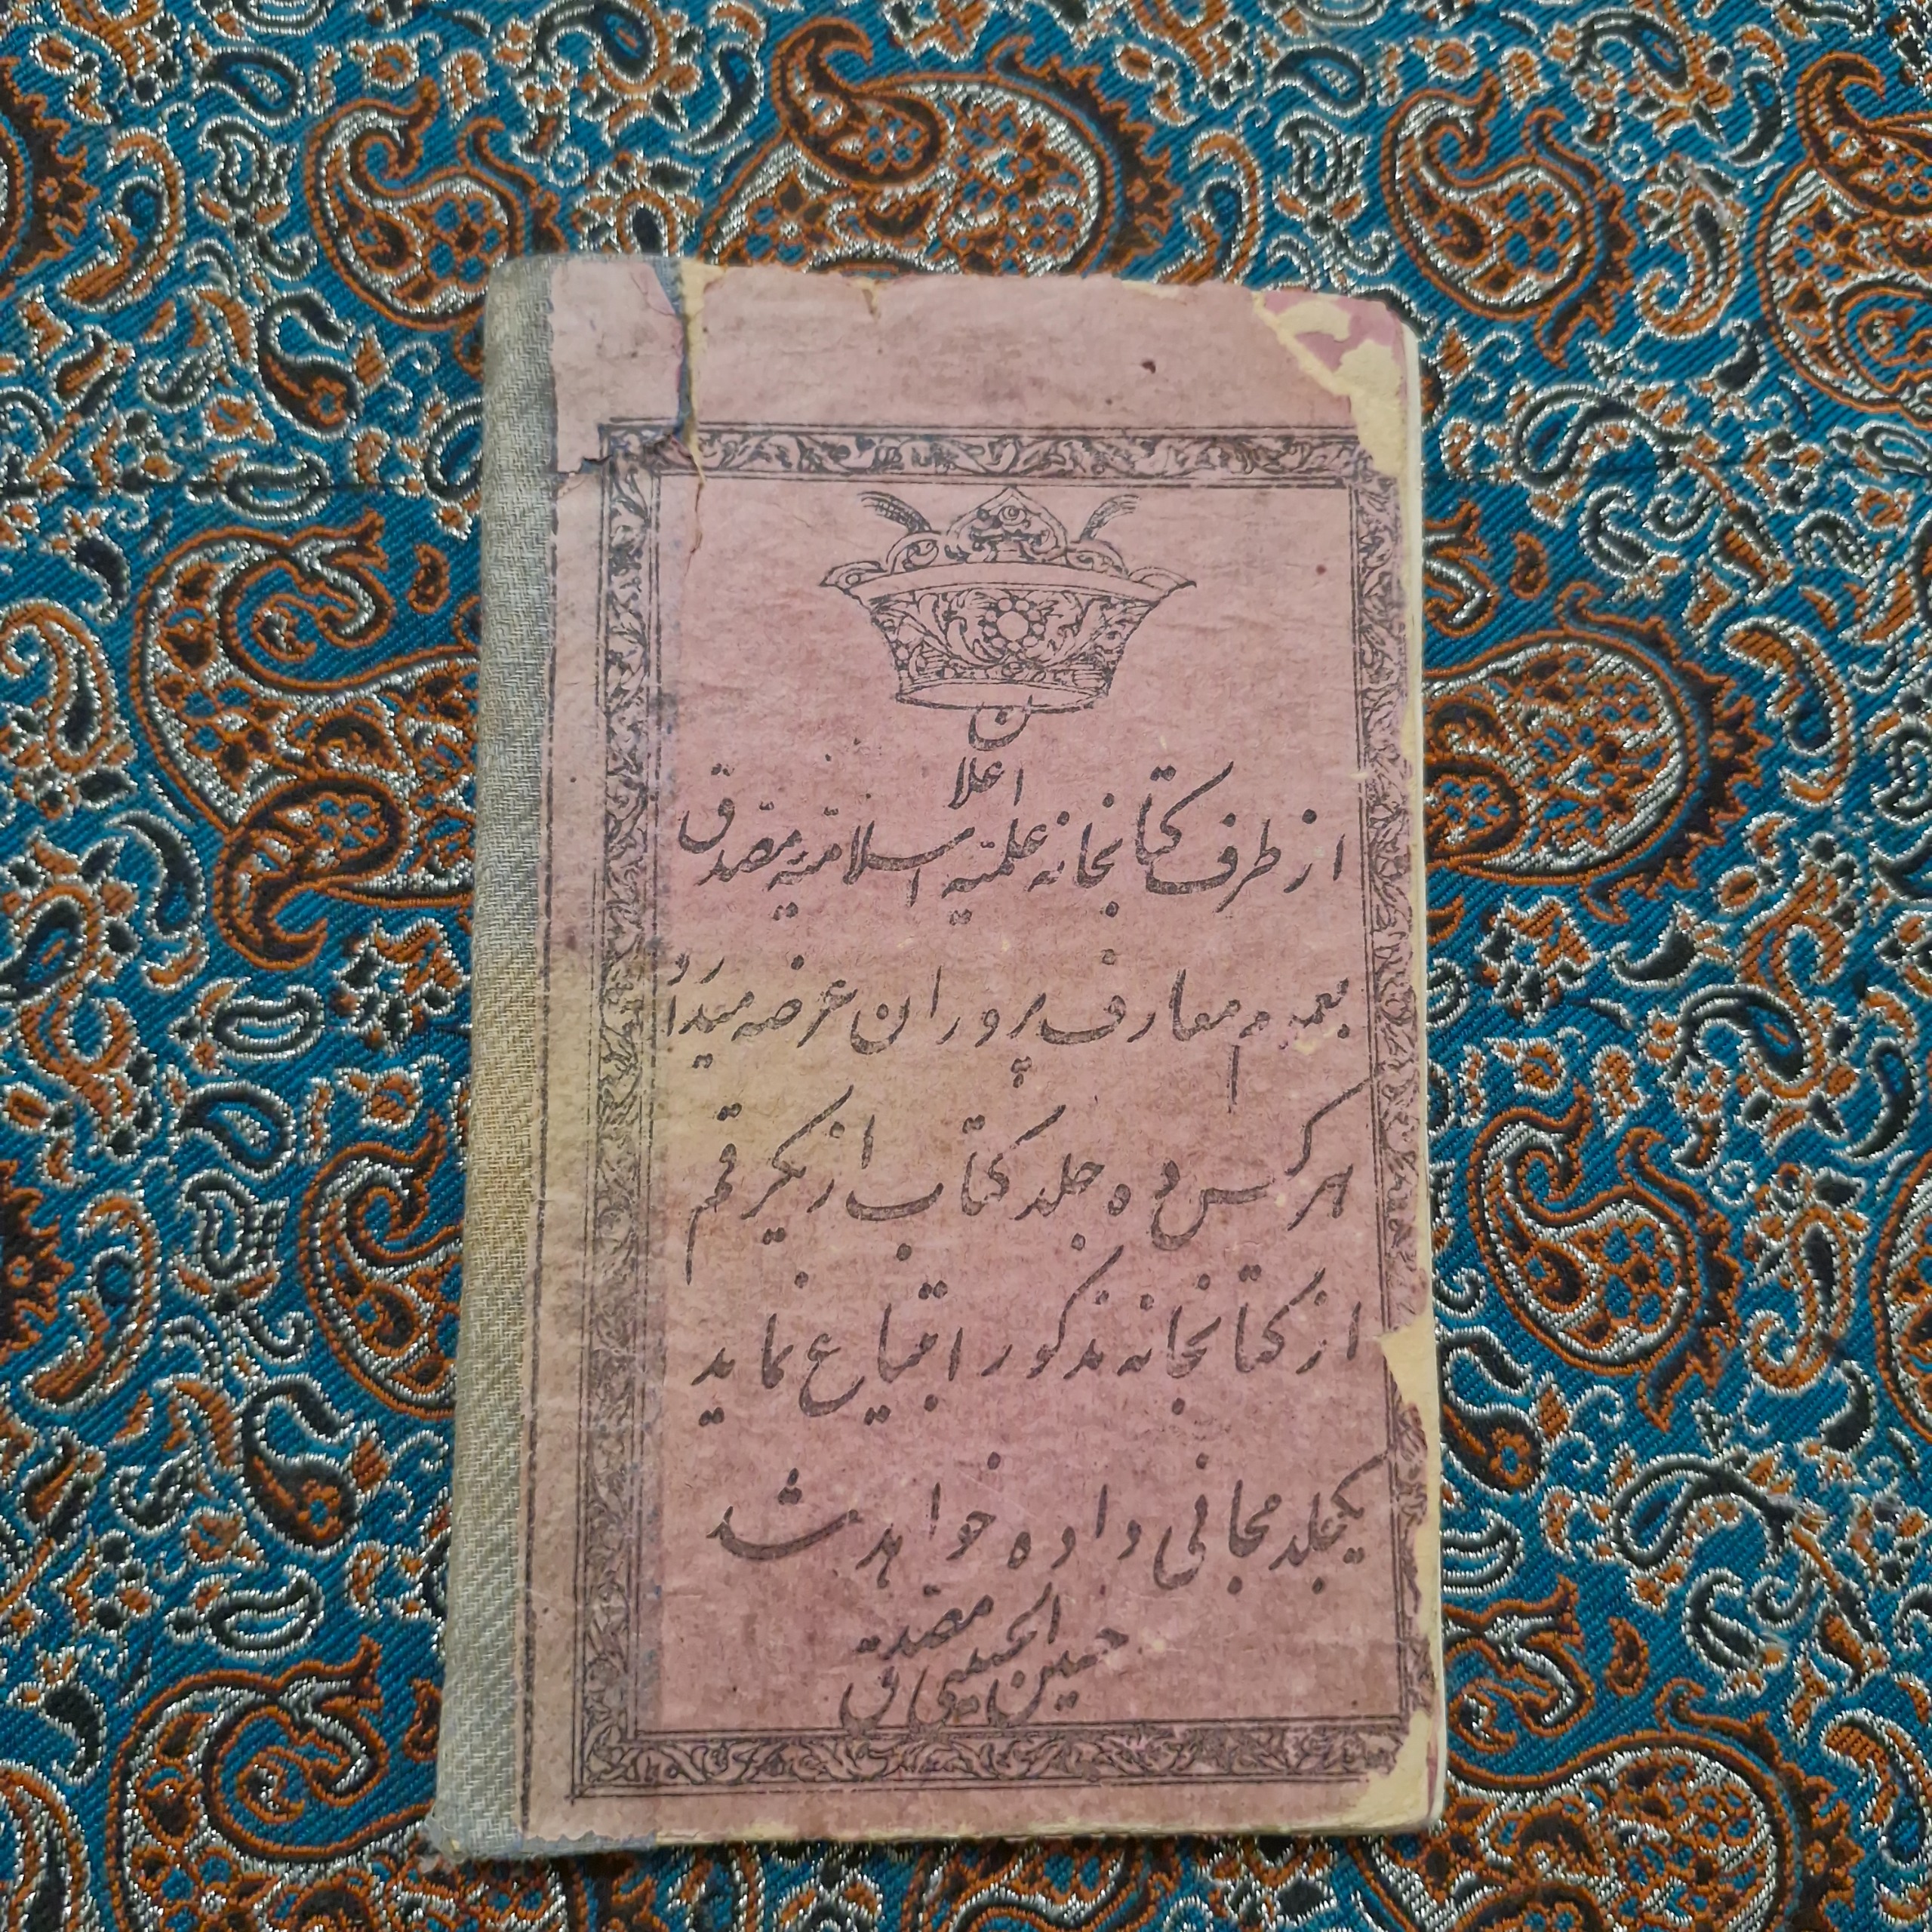 اعلان
از طرف کتابخانه علمیّه اسلامیّه مصدّق
بعموم معارف پروران عرضه میدارد
هر کس ده جلد کتاب از یکرقم
از کتابخانه مذکور ابتیاع نماید
یکجلد مجانی داده خواهد شد
حسین الحسینی مصدق